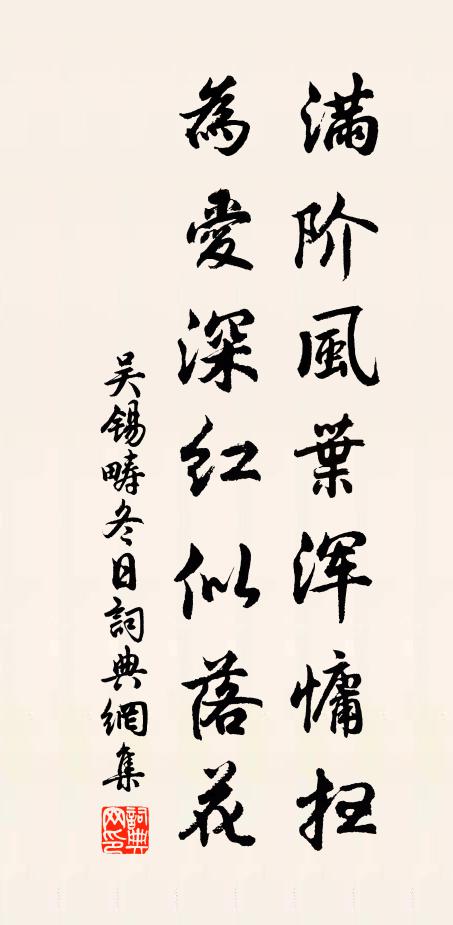 滿阶風葉浑慵扫
為愛深红似落花
吴锡畴冬日詞典網集
詞典網印